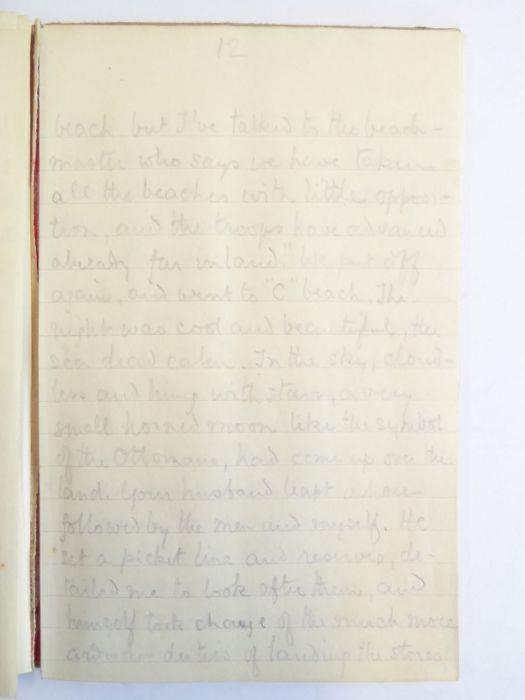 12
beach but I've talked to the beach-
master who says we have taken
all the beaches with little opposi-
tion, and the troops have advanced
already far inland." We put off
again, and went to "C" beach. The
night was cool and beautiful, the
sea dead calm. In the sky, cloud-
less and hung with stars, a very
small horned moon like the symbol
of the Ottomans, had come up over the
land. Your husband leapt ashore
followed by the men and myself. He
set a picket line and reserves, de-
tailed me to look after them, and
himself took charge of the much more
arduous duties of landing the stores